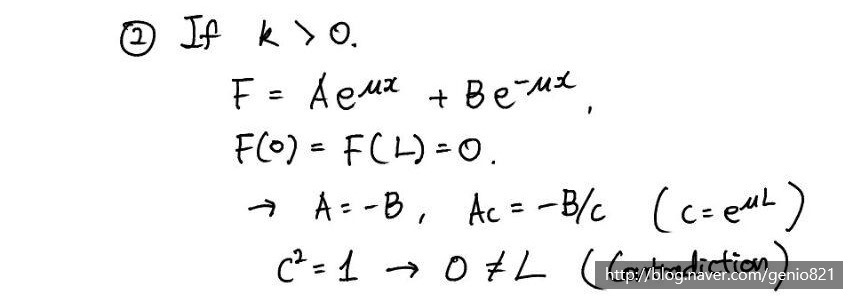 ② If k > 0.
F = Ae^{μx} + Be^{-μx},
F(0) = F(L) = 0.
→ A = -B, Ac = -B/c (c = e^{μL})
c² = 1 → 0 ≠ L (Contradiction)
http://blog.naver.com/genio821